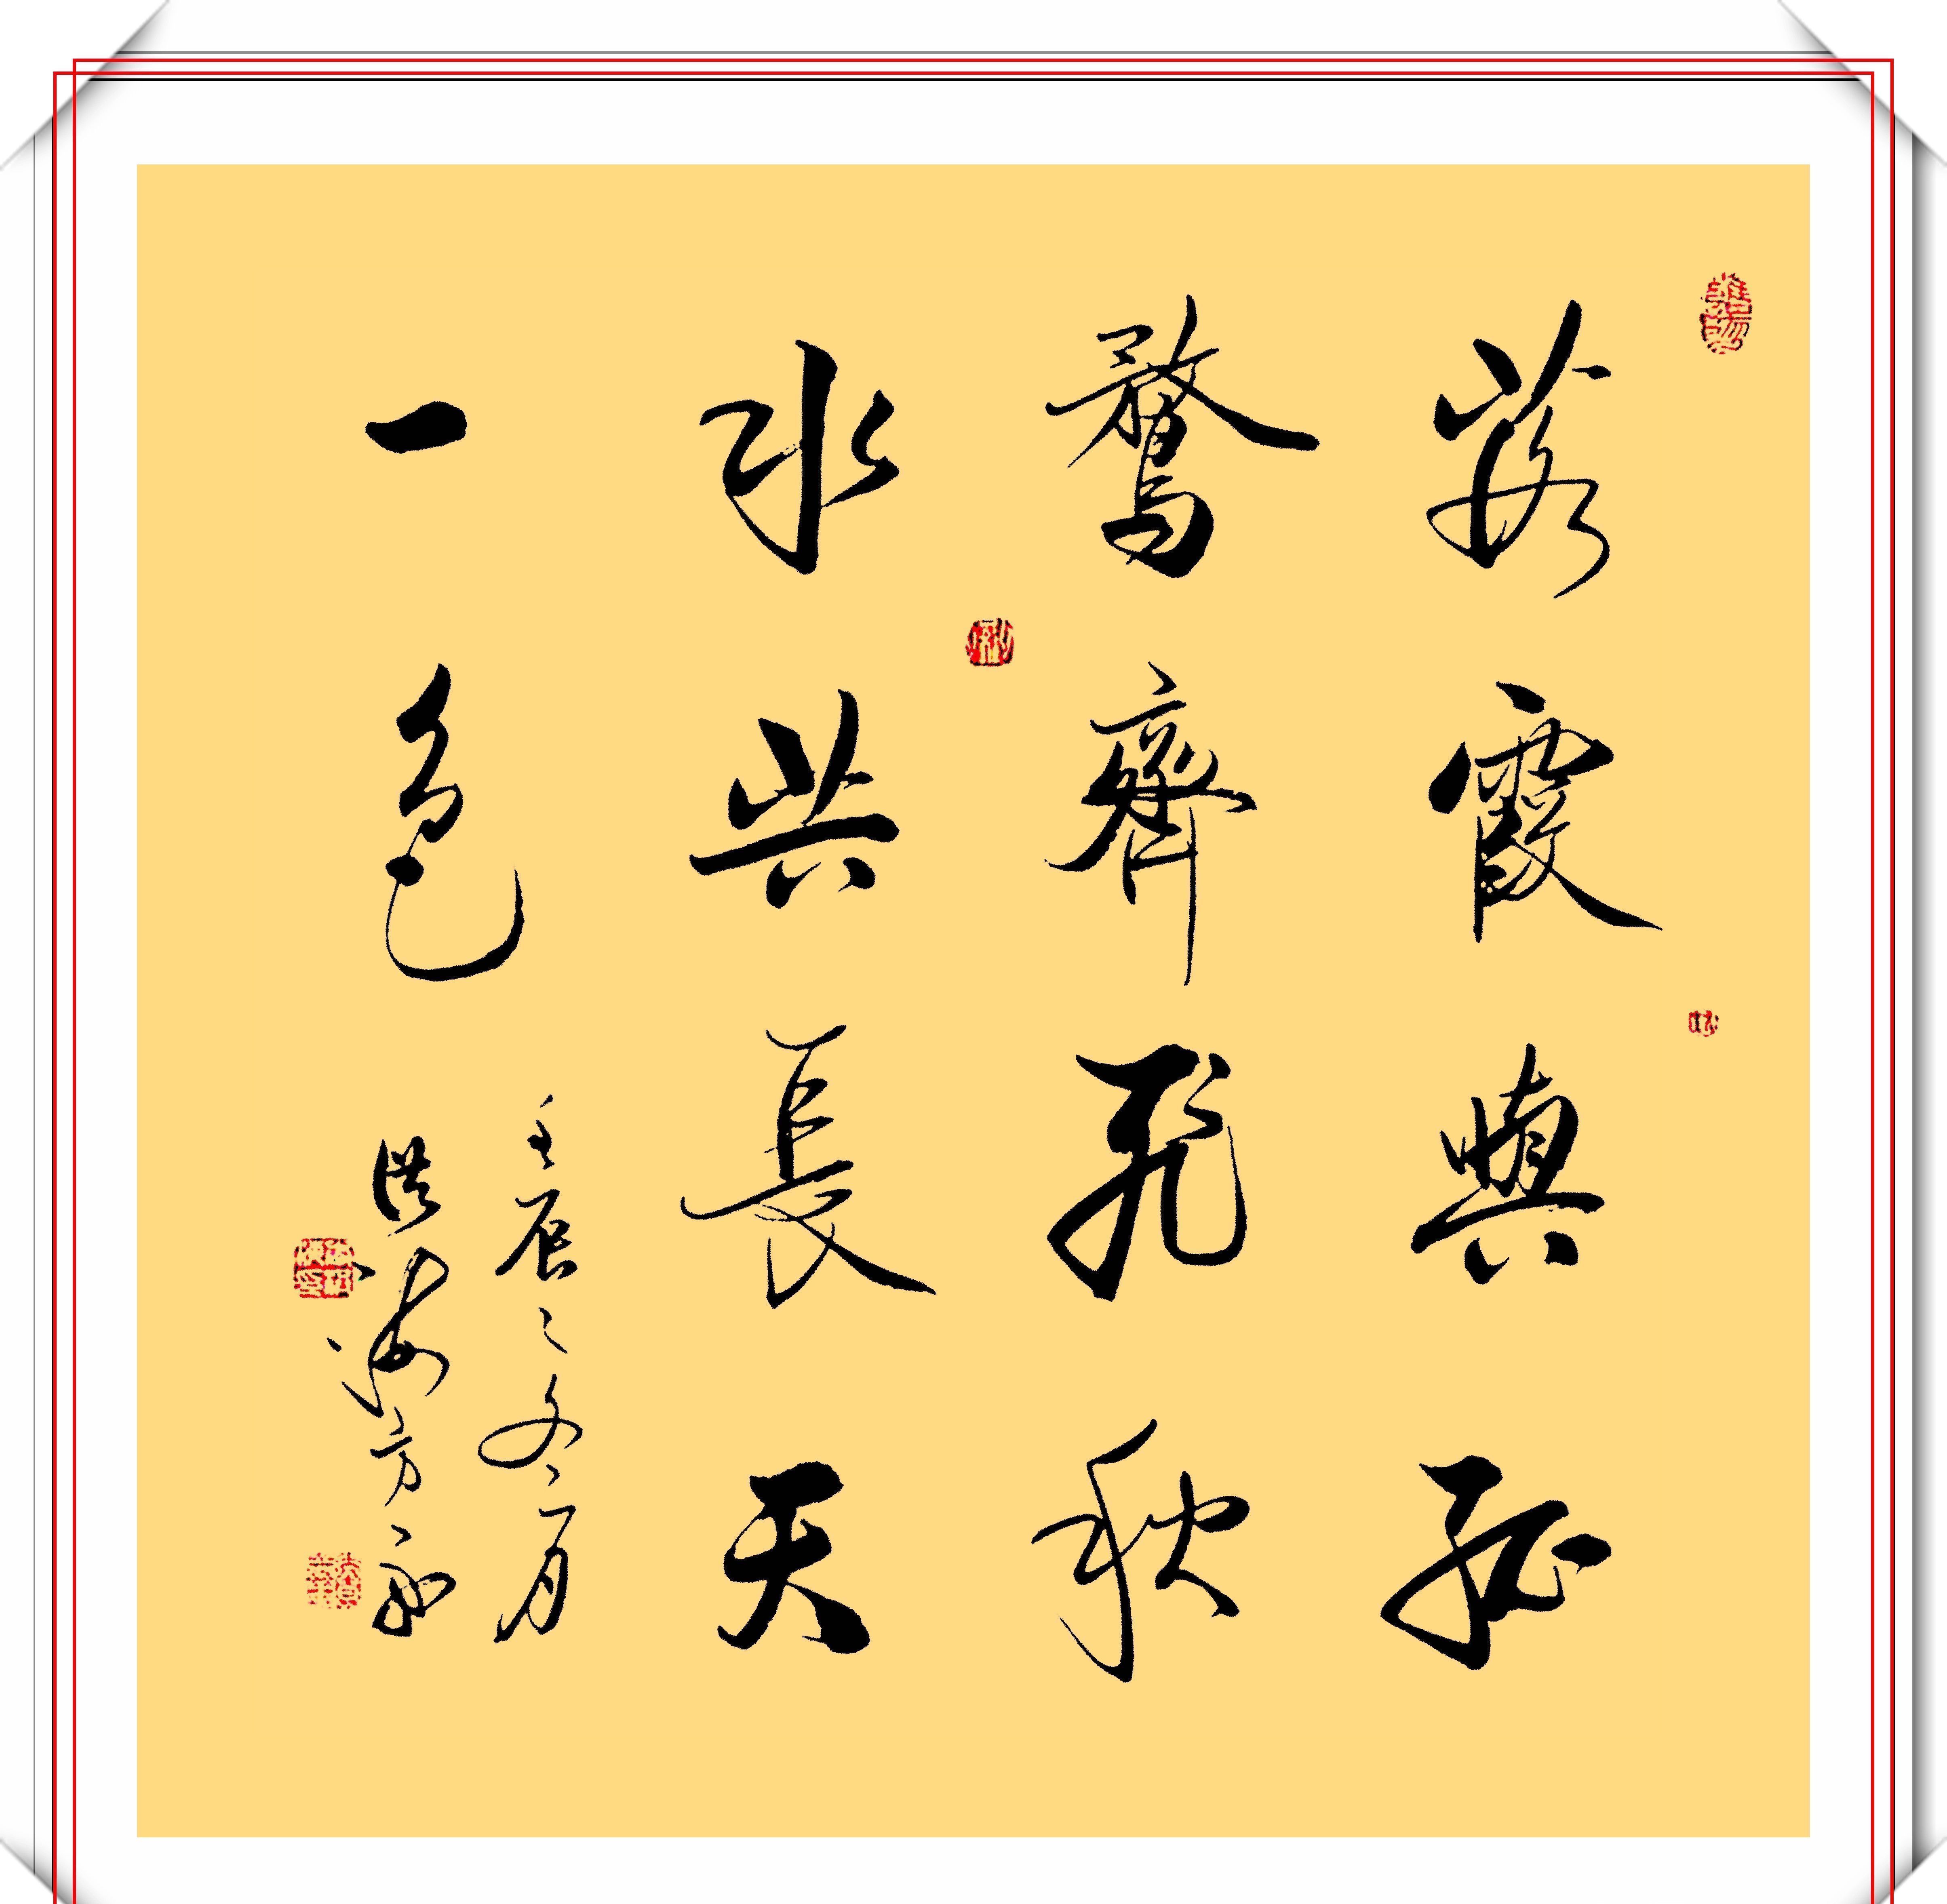 落霞與孤
鶩齊飛秋
水共長天
一色
壬辰之冬月
洪海方